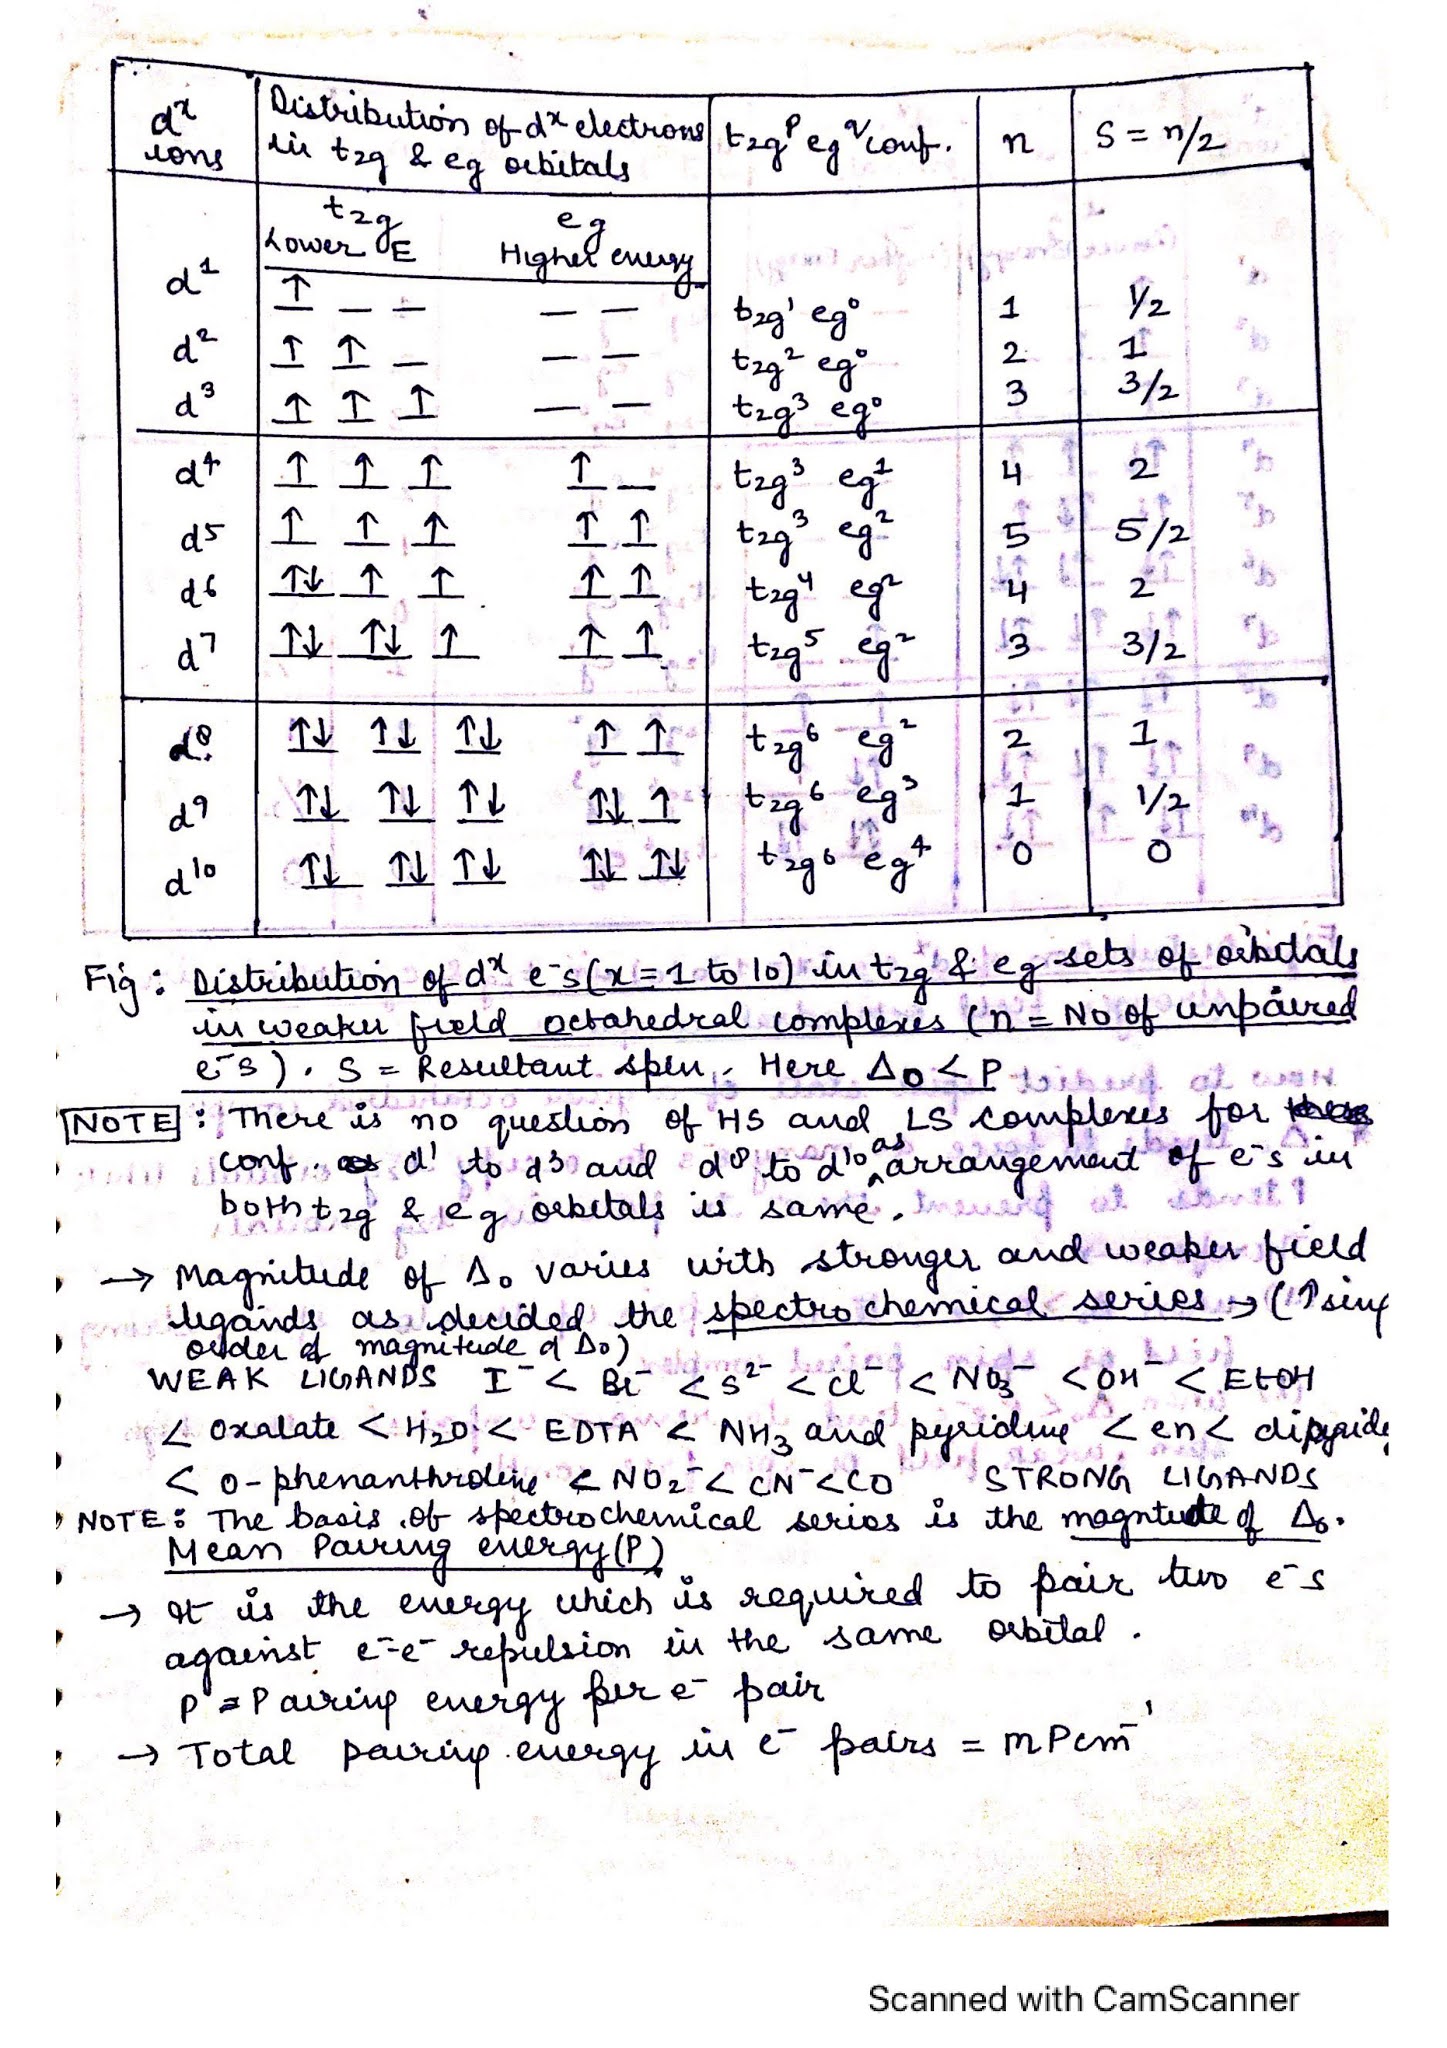 dˣ ions | Distribution of dˣ electrons in t₂g & eg orbitals | t₂gᵖ eg^q conf. | n | S = n/2
t₂g eg
Lower E Higher energy
d¹ ↑ _ _ _ _ t₂g¹ eg⁰ 1 1/2
d² ↑ ↑ _ _ _ t₂g² eg⁰ 2 1
d³ ↑ ↑ ↑ _ _ t₂g³ eg⁰ 3 3/2
d⁴ ↑ ↑ ↑ ↑ _ t₂g³ eg¹ 4 2
d⁵ ↑ ↑ ↑ ↑ ↑ t₂g³ eg² 5 5/2
d⁶ ↑↓ ↑ ↑ ↑ ↑ t₂g⁴ eg² 4 2
d⁷ ↑↓ ↑↓ ↑ ↑ ↑ t₂g⁵ eg² 3 3/2
d⁸ ↑↓ ↑↓ ↑↓ ↑ ↑ t₂g⁶ eg² 2 1
d⁹ ↑↓ ↑↓ ↑↓ ↑↓ ↑ t₂g⁶ eg³ 1 1/2
d¹⁰ ↑↓ ↑↓ ↑↓ ↑↓ ↑↓ t₂g⁶ eg⁴ 0 0
Fig: Distribution of dˣ e⁻s (x = 1 to 10) in t₂g & eg sets of orbitals
in weaker field octahedral complexes (n = No of unpaired
e⁻s). S = Resultant spin. Here Δo < P
NOTE: There is no question of HS and LS complexes for
conf. d¹ to d³ and d⁸ to d¹⁰ as arrangement of e⁻s in
both t₂g & eg orbitals is same.
→ Magnitude of Δo varies with stronger and weaker field
ligands as decided the spectrochemical series → (↑sing
order of magnitude of Δo)
WEAK LIGANDS I⁻ < Br⁻ < S²⁻ < Cl⁻ < NO₃⁻ < OH⁻ < EtOH
< Oxalate < H₂O < EDTA < NH₃ and pyridine < en < dipyride
< o-phenanthroline < NO₂⁻ < CN⁻ < CO STRONG LIGANDS
NOTE: The basis of spectrochemical series is the magntude of Δo.
Mean Pairing energy (P)
→ It is the energy which is required to pair two e⁻s
against e⁻-e⁻ repulsion in the same orbital.
P = Pairing energy per e⁻ pair
→ Total pairing energy in e⁻ pairs = mPcm⁻¹
Scanned with CamScanner